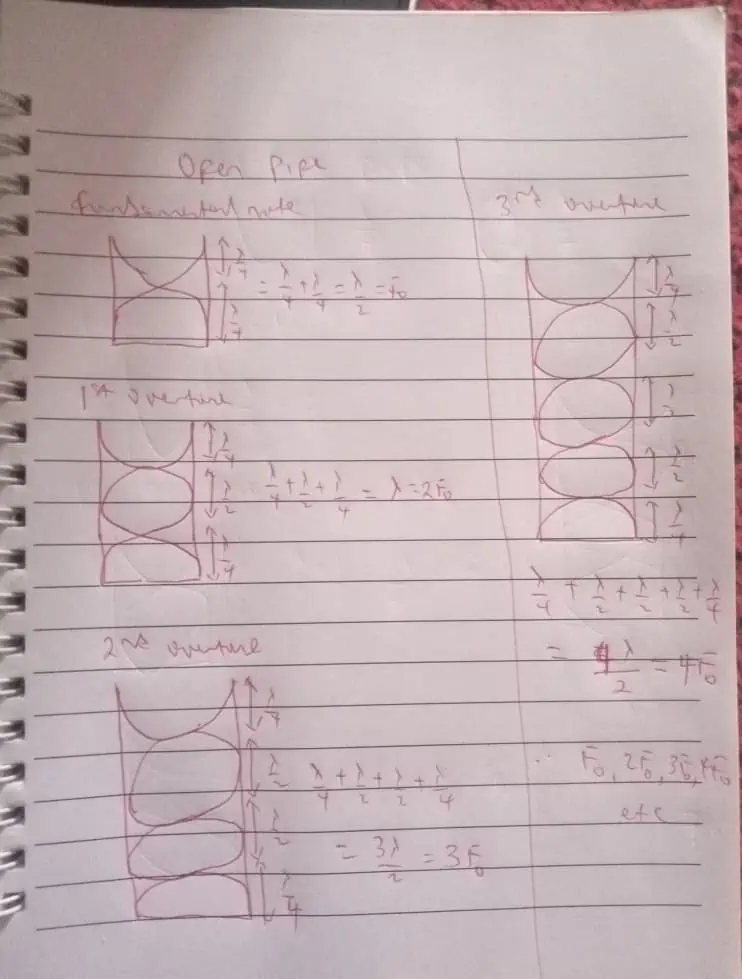 Open Pipe
fundamental note
λ/4
λ/4
= λ/4 + λ/4 = λ/2 = F₀
1st overtune
λ/4
λ/2
λ/4
= λ/4 + λ/2 + λ/4 = λ = 2F₀
2nd overtune
λ/4
λ/2
λ/2
λ/4
λ/4 + λ/2 + λ/2 + λ/4
= 3λ/2 = 3F₀
3rd overtune
λ/4
λ/2
λ/2
λ/2
λ/4
λ/4 + λ/2 + λ/2 + λ/2 + λ/4
= 4λ/2 = 4F₀
∴ F₀, 2F₀, 3F₀, 4F₀
etc